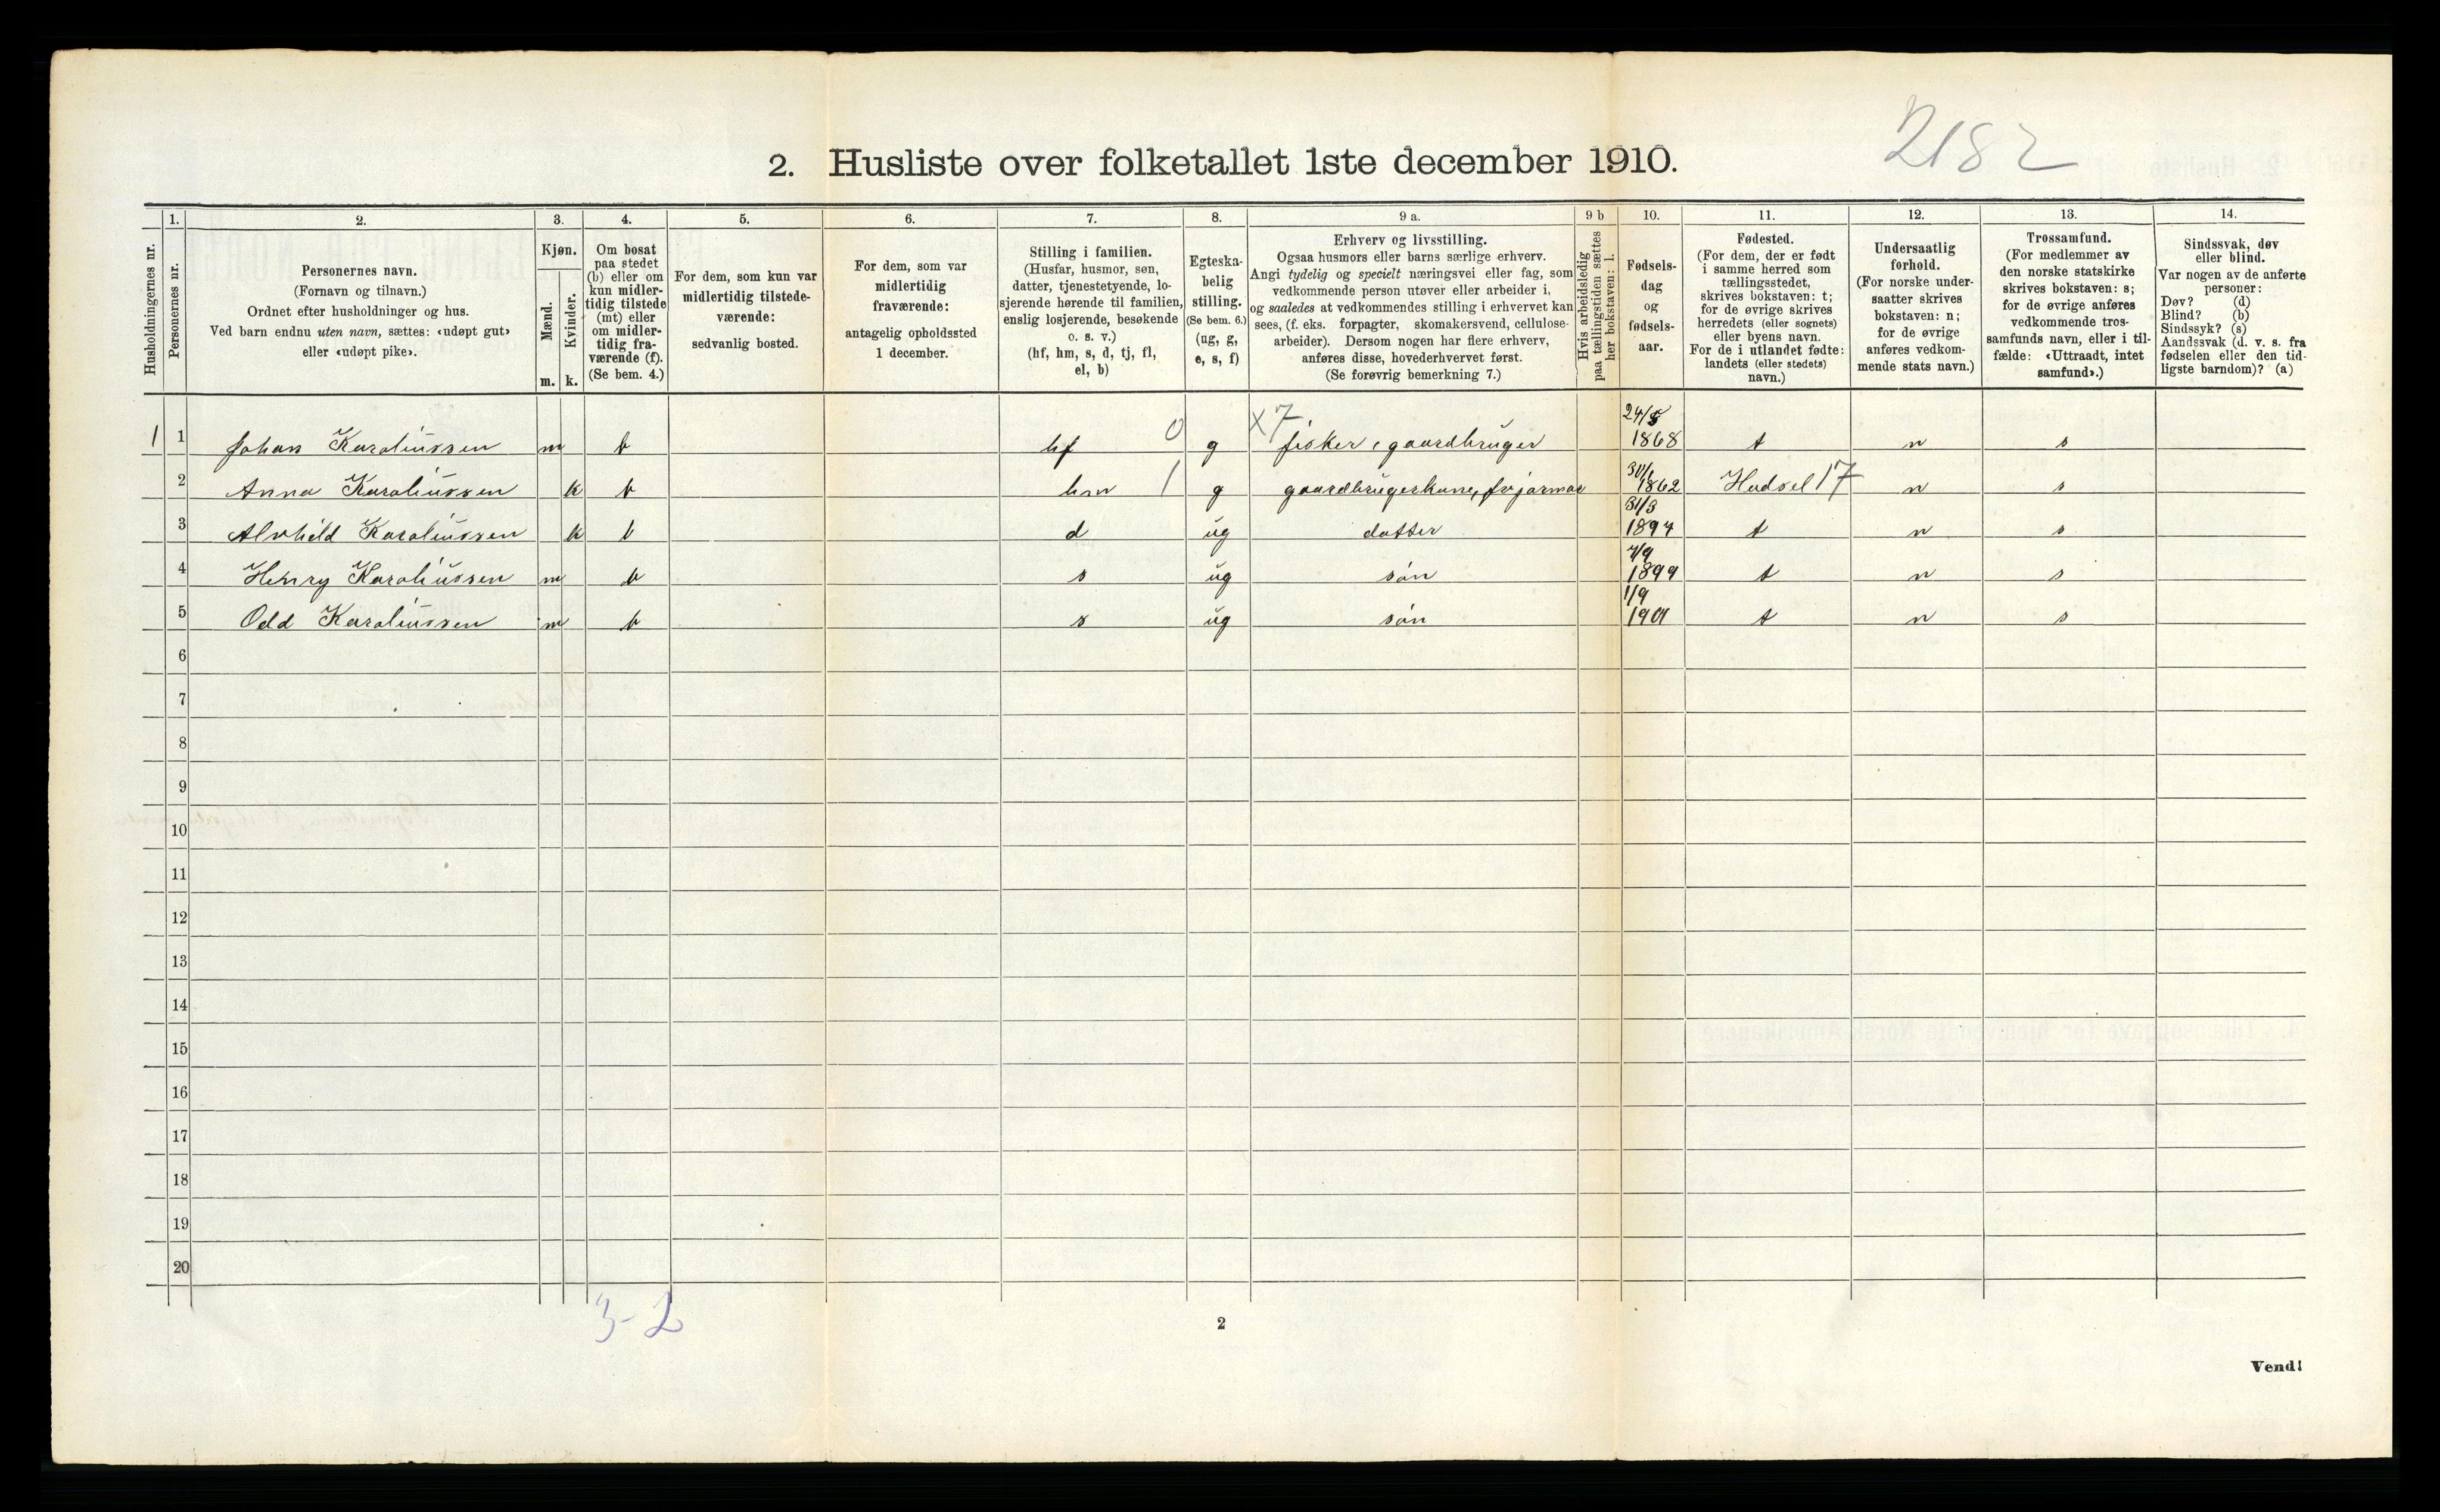 2182
2. Husliste over folketallet 1ste december 1910.
Husholdningernes nr.
1.
Personernes nr.
2.
Personernes navn.
(Fornavn og tilnavn.)
Ordnet efter husholdninger og hus.
Ved barn endnu uten navn, sættes: «udøpt gut»
eller «udøpt pike».
3.
Kjøn.
Mænd.
Kvinder.
m. k.
4.
Om bosat
paa stedet
(b) eller om
kun midler-
tidig tilstede
(mt) eller
om midler-
tidig fra-
værende (f).
(Se bem. 4.)
5.
For dem, som kun var
midlertidig tilstede-
værende:
sedvanlig bosted.
6.
For dem, som var
midlertidig
fraværende:
antagelig opholdssted
1 december.
7.
Stilling i familien.
(Husfar, husmor, søn,
datter, tjenestetyende, lo-
sjerende hørende til familien,
enslig losjerende, besøkende
o. s. v.)
(hf, hm, s, d, tj, fl,
el, b)
8.
Egteska-
belig
stilling.
(Se bem. 6.)
(ug, g,
e, s, f)
9 a.
Erhverv og livsstilling.
Ogsaa husmors eller barns særlige erhverv.
Angi tydelig og specielt næringsvei eller fag, som
vedkommende person utøver eller arbeider i,
og saaledes at vedkommendes stilling i erhvervet kan
sees, (f. eks. forpagter, skomakersvend, cellulose-
arbeider). Dersom nogen har flere erhverv,
anføres disse, hovederhvervet først.
(Se forøvrig bemerkning 7.)
9 b
Hvis arbeidsledig
paa tællingstiden sættes
her bokstaven: l.
10.
Fødsels-
dag
og
fødsels-
aar.
11.
Fødested.
(For dem, der er født
i samme herred som
tællingsstedet,
skrives bokstaven: t;
for de øvrige skrives
herredets (eller sognets)
eller byens navn.
For de i utlandet fødte:
landets (eller stedets)
navn.)
12.
Undersaatlig
forhold.
(For norske under-
saatter skrives
bokstaven: n;
for de øvrige
anføres vedkom-
mende stats navn.)
13.
Trossamfund.
(For medlemmer av
den norske statskirke
skrives bokstaven: s;
for de øvrige anføres
vedkommende tros-
samfunds navn, eller i til-
fælde: «Uttraadt, intet
samfund».)
14.
Sindssvak, døv
eller blind.
Var nogen av de anførte
personer:
Døv? (d)
Blind? (b)
Sindssyk? (s)
Aandssvak (d. v. s. fra
fødselen eller den tid-
ligste barndom)? (a)
1 1 Johan Karoliussen m b hf 0 g x7 fisker, gaardbruger 24/5 1868 t n s
2 Anna Karoliussen k b hm 1 g gaardbrugerkone, 1862 Hadsel 17 n s
3 Alvhild Karoliussen k b d ug datter 31/3 1894 t n s
4 Henry Karoliussen m b s ug søn 7/9 1899 t n s
5 Odd Karoliussen m b s ug søn 1/9 1901 t n s
6
7
8
9
10
11
12
13
14
15
16
17
18
19
20
3-2
2
Vend!